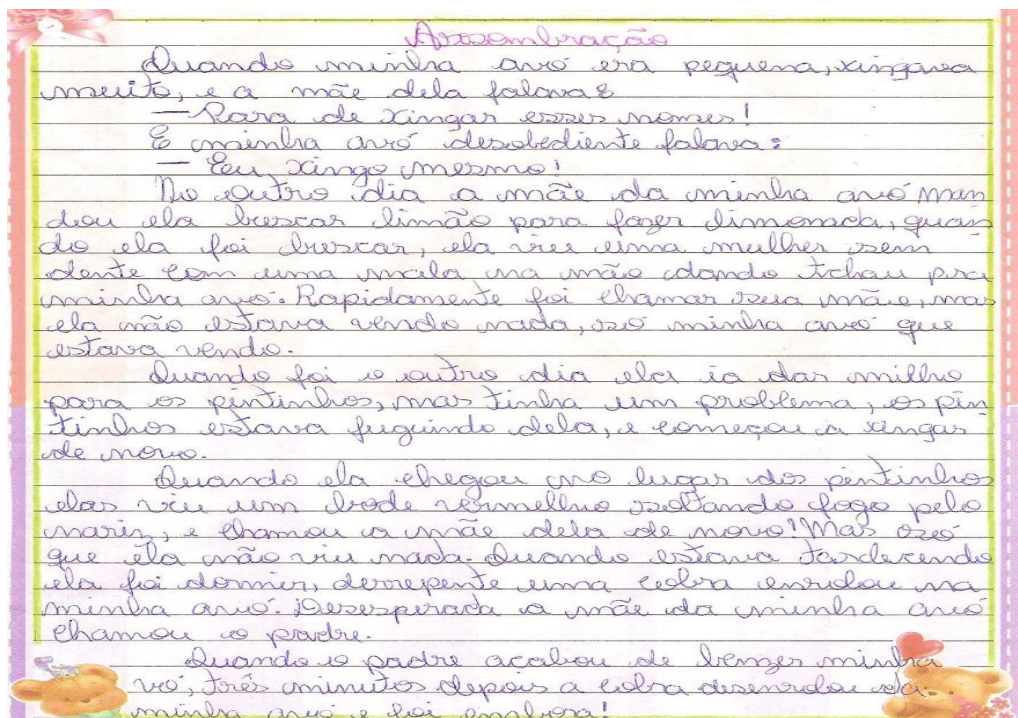 Assombração
Quando minha avó era pequena, xingava
muito, e a mãe dela falava:
— Para de xingar esses nomes!
E minha avó desobediente falava:
— Eu xingo mesmo!
No outro dia a mãe da minha avó man
dou ela buscar limão para fazer limonada, quan
do ela foi buscar, ela viu uma mulher sem
dente com uma mala na mão dando tchau pra
minha avó. Rapidamente foi chamar sua mãe, mas
ela não estava vendo nada, só minha avó que
estava vendo.
Quando foi o outro dia ela ia dar milho
para os pintinhos, mas tinha um problema, os pin
tinhos estava fuguindo dela, e começou a xingar
de novo.
Quando ela chegou no lugar dos pintinhos
elas viu um bode vermelho soltando fogo pelo
nariz, e chamou a mãe dela de novo! Mas só
que ela não viu nada. Quando estava tardecendo
ela foi dormir, derrepente uma cobra enrolou na
minha avó. Desesperada a mãe da minha avó
chamou o padre.
Quando o padre acabou de benzer minha
vó, três minutos depois a cobra desenrolou da
minha avó e foi embora!